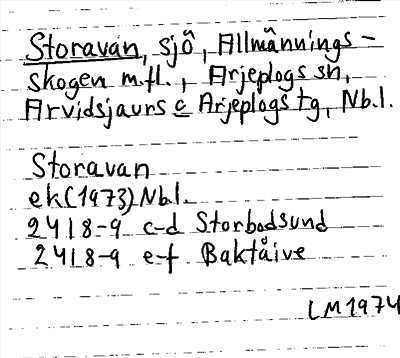 Storavan, sjö, Allmännings-
skogen m.fl., Arjeplogs sn,
Arvidsjaurs o Arjeplogs tg, Nb.l.
Storavan
ek (1973) Nb.l.
24I8-9 c-d Storbodsund
24I8-9 e-f Baktåive
LM1974